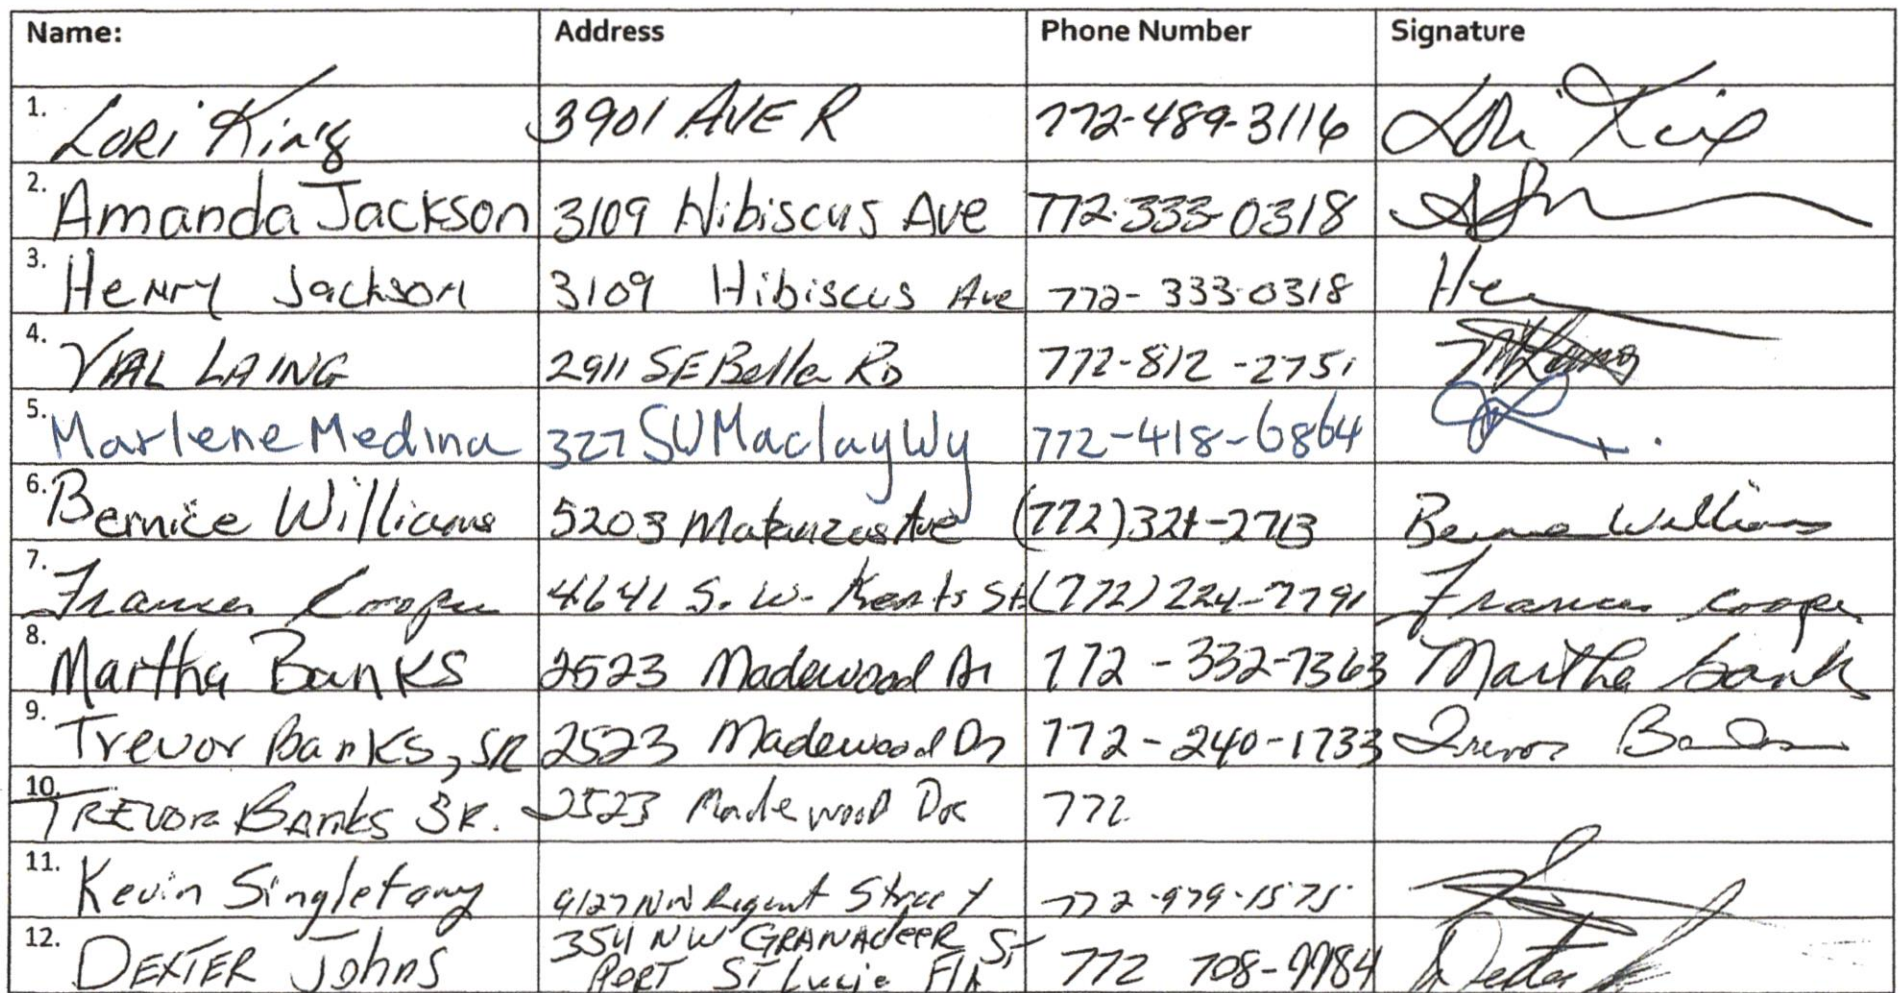 Name: Address Phone Number Signature
1. Lori King 3901 AVE R 772-489-3116 Lori King
2. Amanda Jackson 3109 Hibiscus Ave 772-333-0318
3. Henry Jackson 3109 Hibiscus Ave 772-333-0318
4. VAL LAING 2911 SE Bella RD 772-812-2751
5. Marlene Medina 327 SW Maclay Wy 772-418-6864
6. Bernice Williams 5203 Matanzas Ave (772) Bernice Williams
7. Frances Cooper 4641 S. W. St (772) 224-7791 Frances Cooper
8. Martha Banks 2523 Madewood Dr 772-332-7363 Martha Banks
9. Trevor Banks, SR 2523 Madewood Dr 772-240-1733 Trevor Banks
10. TREVOR BANKS SR. 2523 Madewood 772
11. Kevin Singletary NW Regent Street 772-979-1575
12. DEXTER Johns 354 NW GRANAdEER ST 772 Dexter
PORT ST Lucie FlA